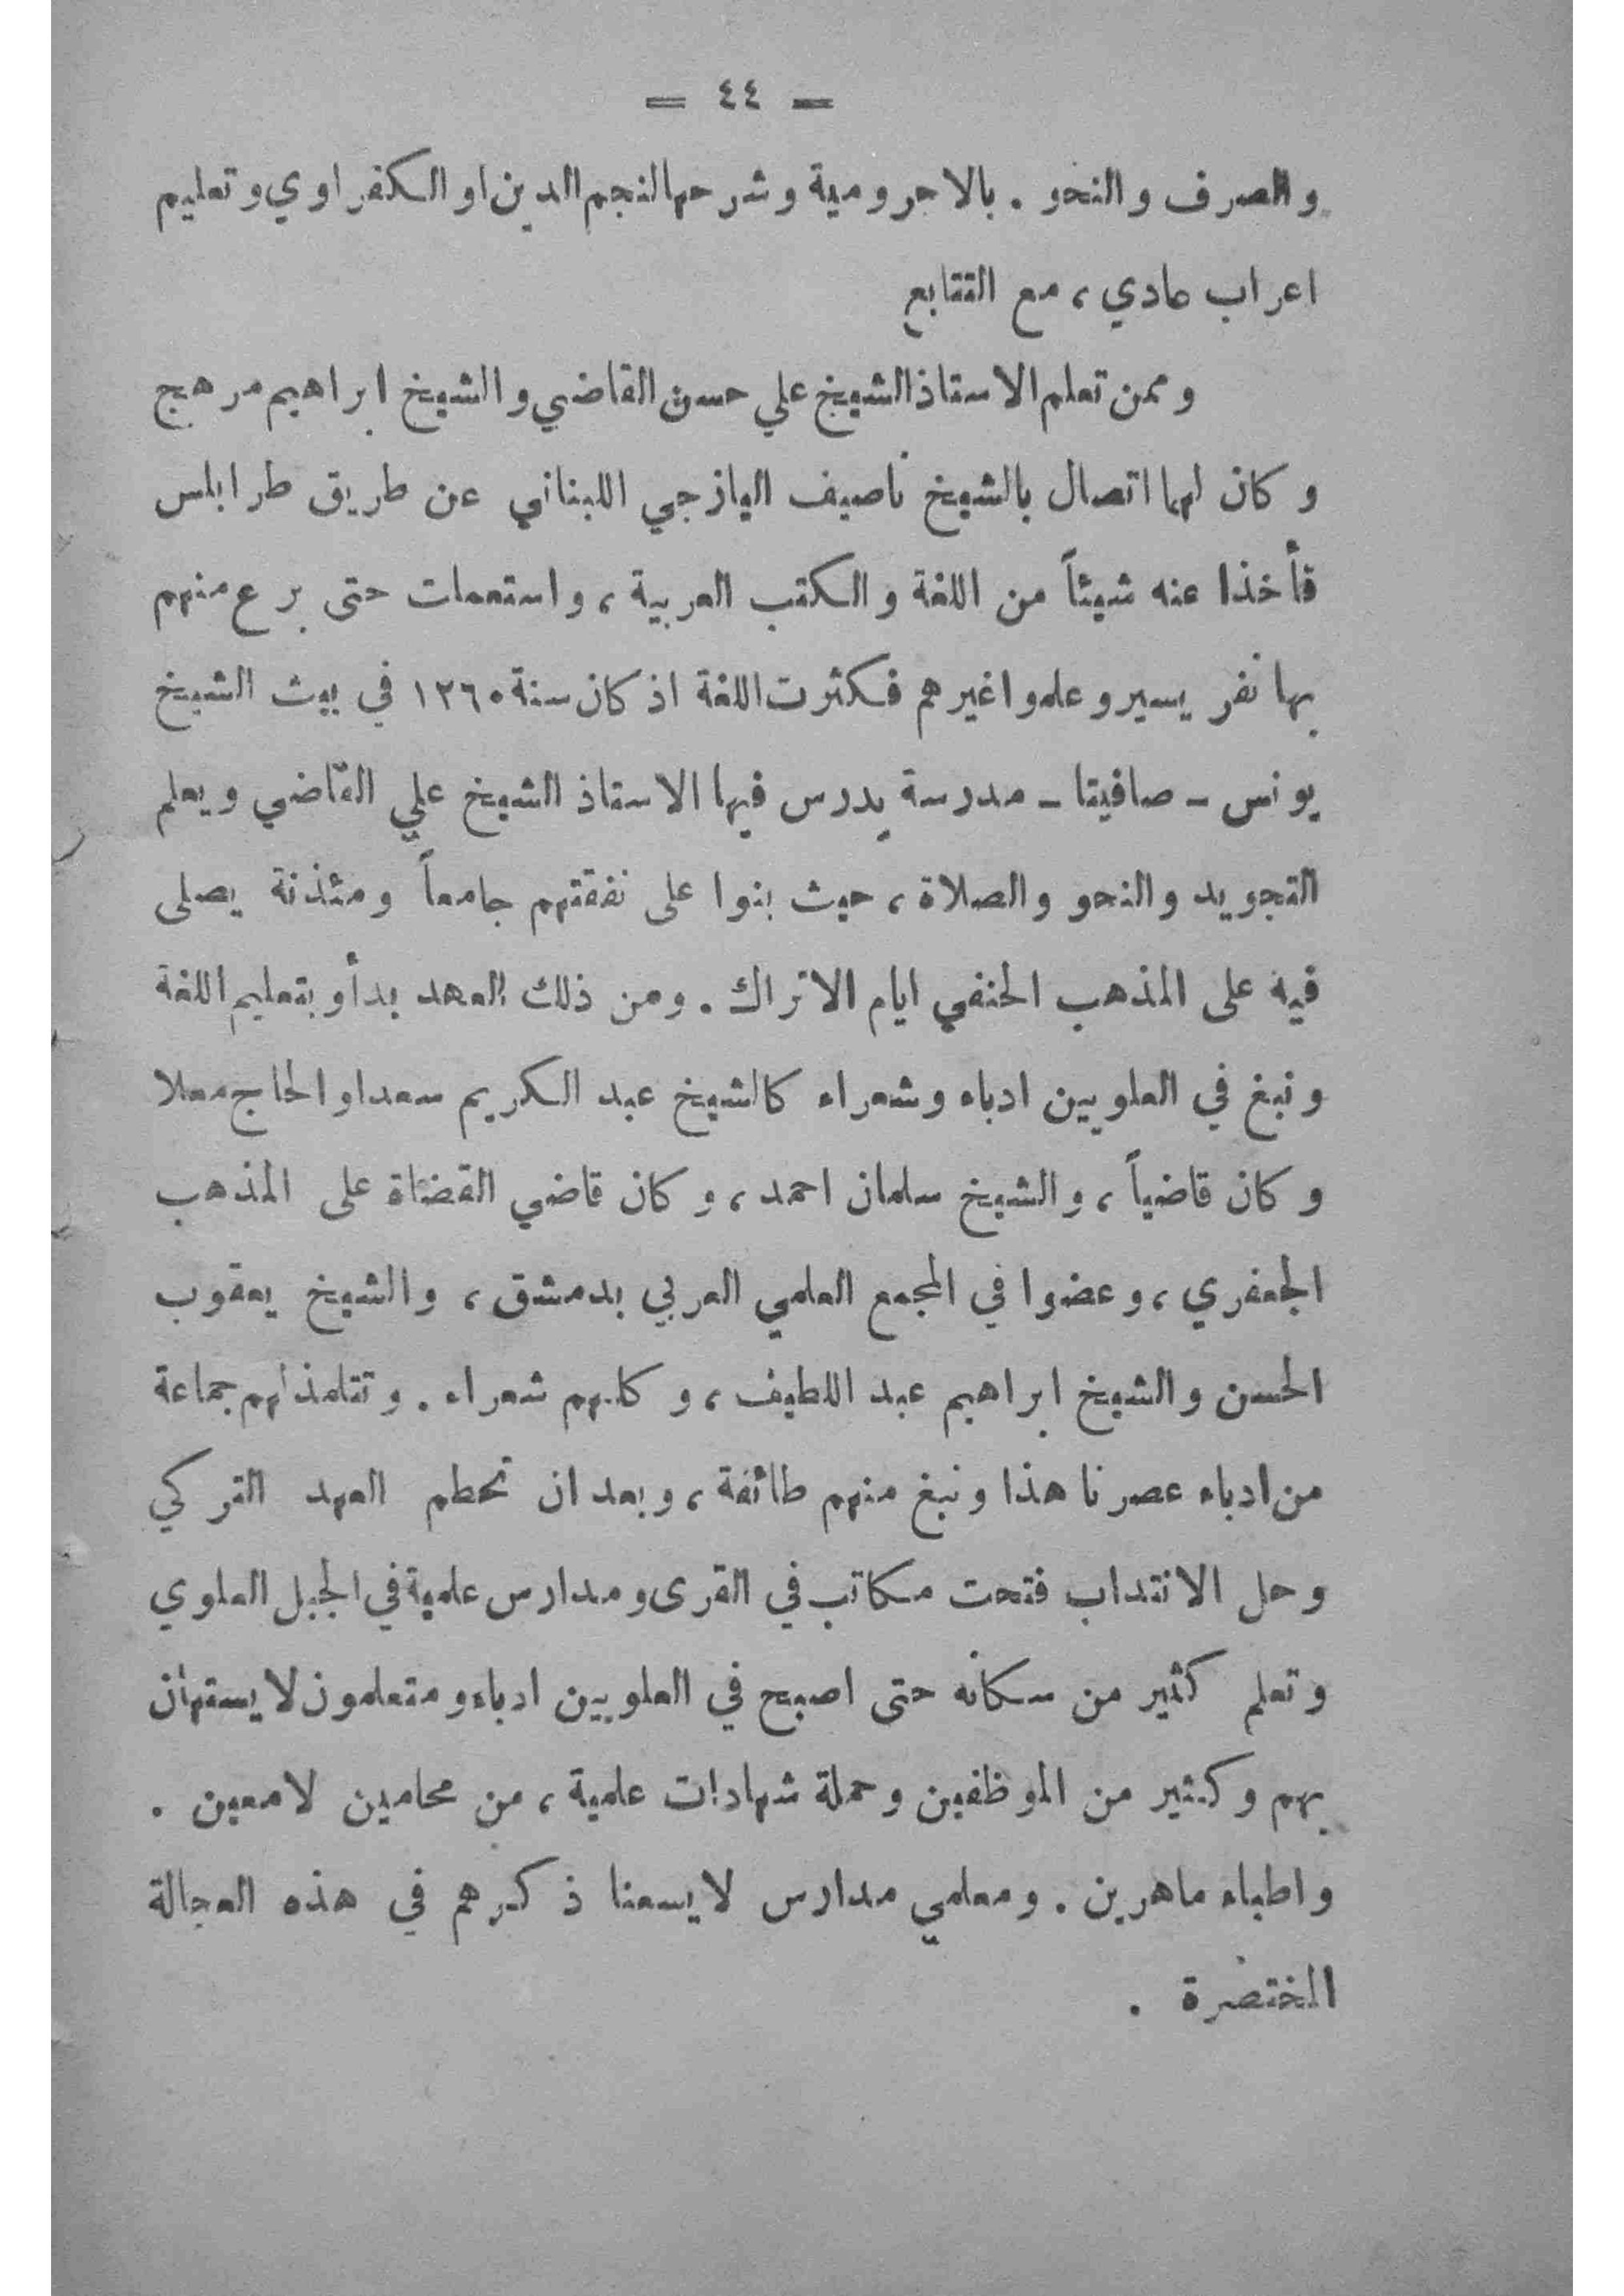 = ٤٤ =
والصرف والنحو . بالاجرومية وشرحها لنجم الدين او الكفراوي وتعليم
اعراب عادي ، مع التتابع
وممن تعلم الاستاذ الشيخ علي حسن القاضي والشيخ ابراهيم مرهج
وكان لهما اتصال بالشيخ ناصيف اليازجي اللبناني عن طريق طرابلس
فأخذا عنه شيئاً من اللغة والكتب العربية ، واستعملت حتى برع منهم
بها نفر يسير وعلموا غيرهم فكثرت اللغة اذ كان سنة ١٢٦٠ في بيت الشيخ
يونس - صافيتا - مدرسة يدرس فيها الاستاذ الشيخ علي القاضي ويعلم
التجويد والنحو والصلاة ، حيث بنوا على نفقتهم جامعاً ومئذنة يصلى
فيه على المذهب الحنفي ايام الاتراك . ومن ذلك العهد بدأو بتعليم اللغة
ونبغ في العلويين ادباء وشعراء كالشيخ عبد الكريم سعداو الحاج معلا
وكان قاضياً ، والشيخ سلمان احمد ، وكان قاضي القضاة على المذهب
الجعفري ، وعضوا في المجمع العلمي العربي بدمشق ، والشيخ يعقوب
الحسن والشيخ ابراهيم عبد اللطيف ، وكلهم شعراء . وتتلمذ لهم جماعة
من ادباء عصرنا هذا ونبغ منهم طائفة ، وبعد ان تحطم العهد التركي
وحل الانتداب فتحت مكاتب في القرى ومدارس علمية في الجبل العلوي
وتعلم كثير من سكانه حتى اصبح في العلويين ادباء ومتعلمون لا يستهان
بهم وكثير من الموظفين وحملة شهادات علمية ، من محامين لامعين .
واطباء ماهرين . ومعلمي مدارس لا يسعنا ذكرهم في هذه العجالة
المختصرة .